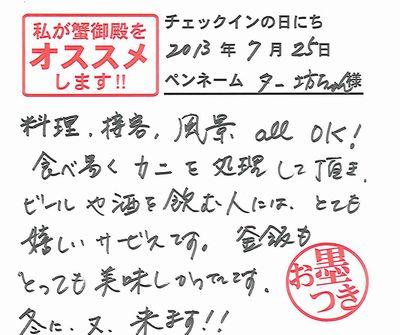 私が蟹御殿を
オススメ
します!!
チェックインの日にち
2013年7月25日
ペンネーム ター坊ちゃん様
料理、接客、風景 all OK!
食べ易く カニを処理して頂き、
ビールや酒を飲む人には、とても
嬉しいサービスです。釜飯も
とっても美味しかったです。
冬に、又、来ます!!
お墨つき